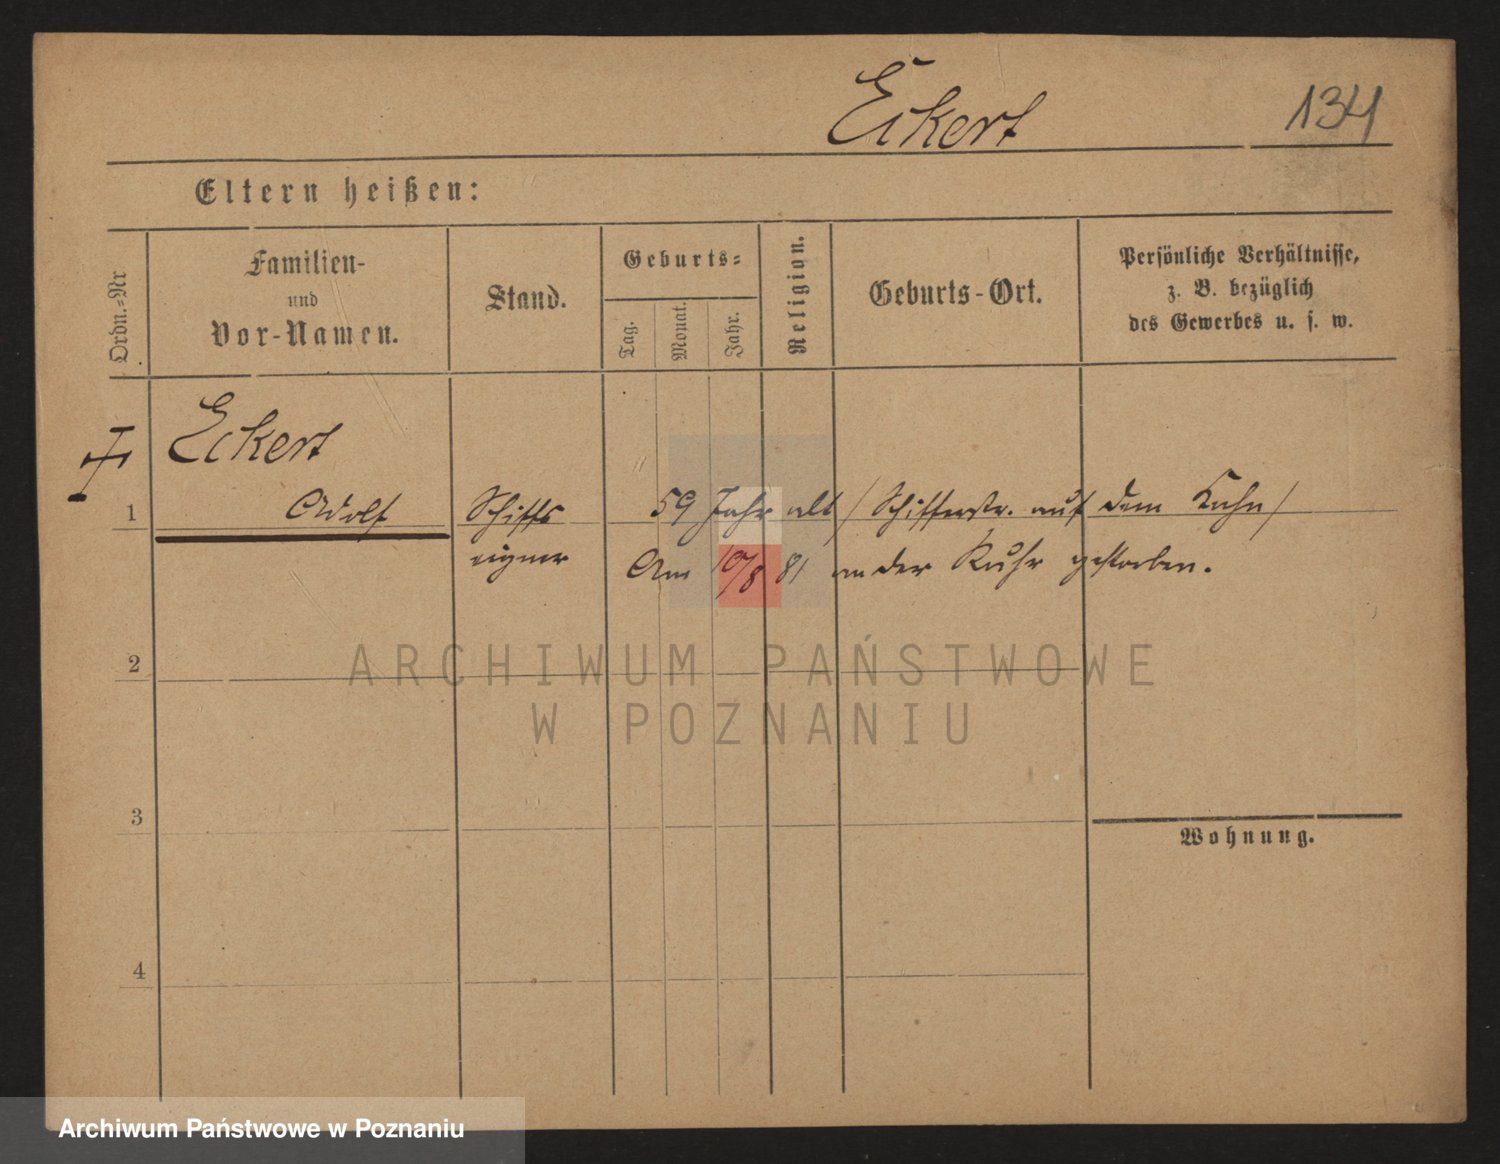 Eckert 134
Eltern heißen:
Ordn.-Nr
Familien-
und
Vor-Namen.
Stand.
Geburts-
Tag.
Monat.
Jahr.
Religion.
Geburts-Ort.
Persönliche Verhältnisse,
z. B. bezüglich
des Gewerbes u. s. w.
Eckert
1 Adolf Schiffs 59 Jahr alt / Schifferstr. auf dem Kahn /
eigner Am 10/8 81 an der Ruhr gestorben.
2
3
Wohnung.
4
ARCHIWUM PAŃSTWOWE
W POZNANIU
Archiwum Państwowe w Poznaniu